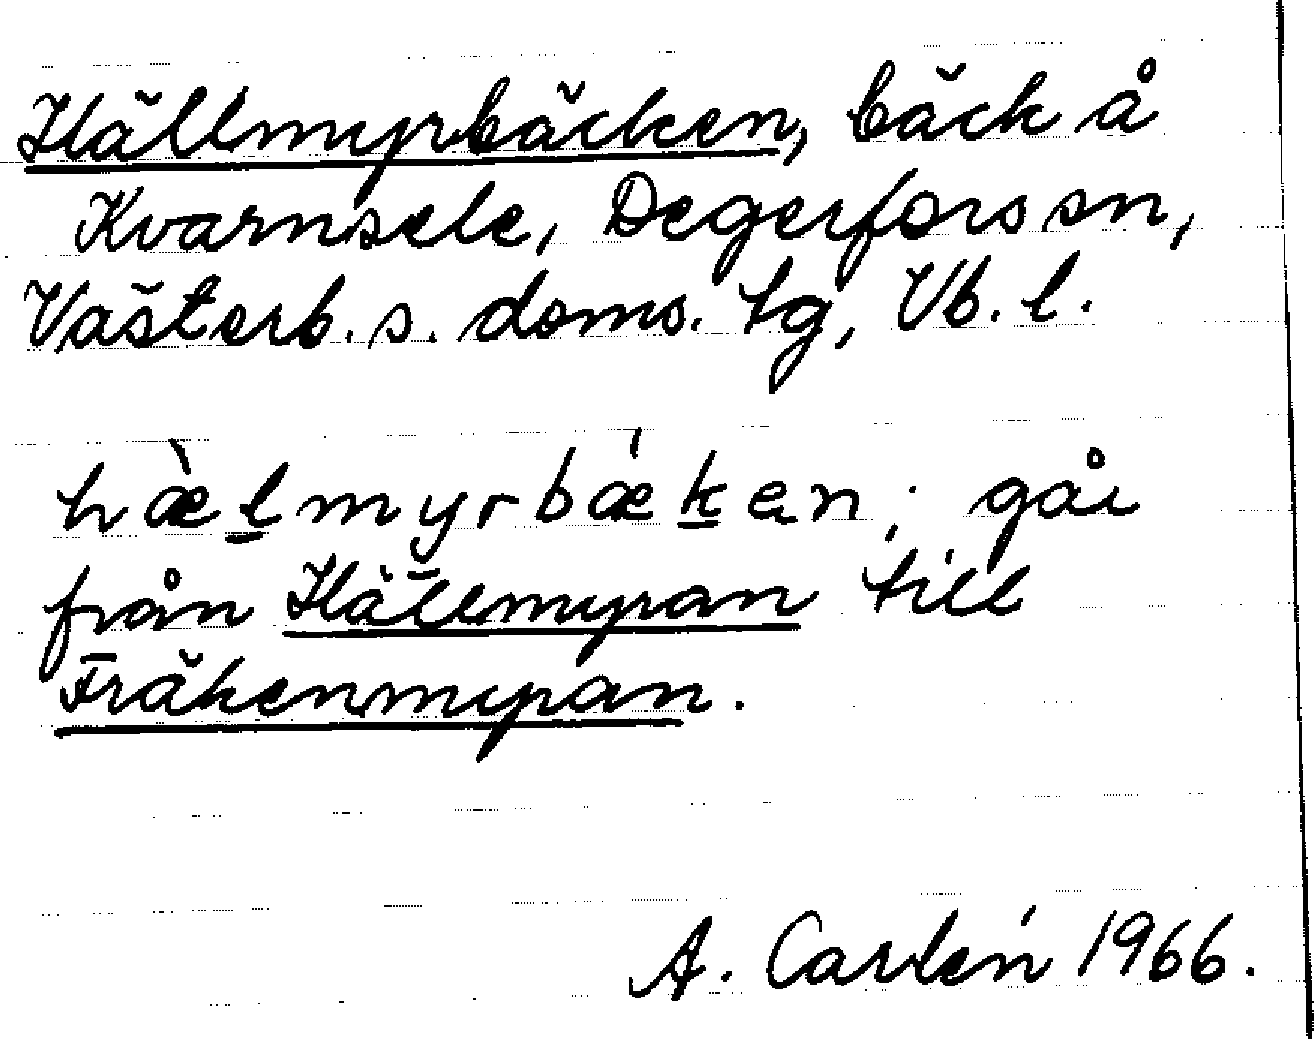 Hällmyrbäcken, bäck å
Kvarnsele, Degerfors sn,
Västerb. s. doms. tg, Vb. l.
hæ̀lmyrbǽken; går
från Hällmyran till
Fräkenmyran.
A. Carlén 1966.